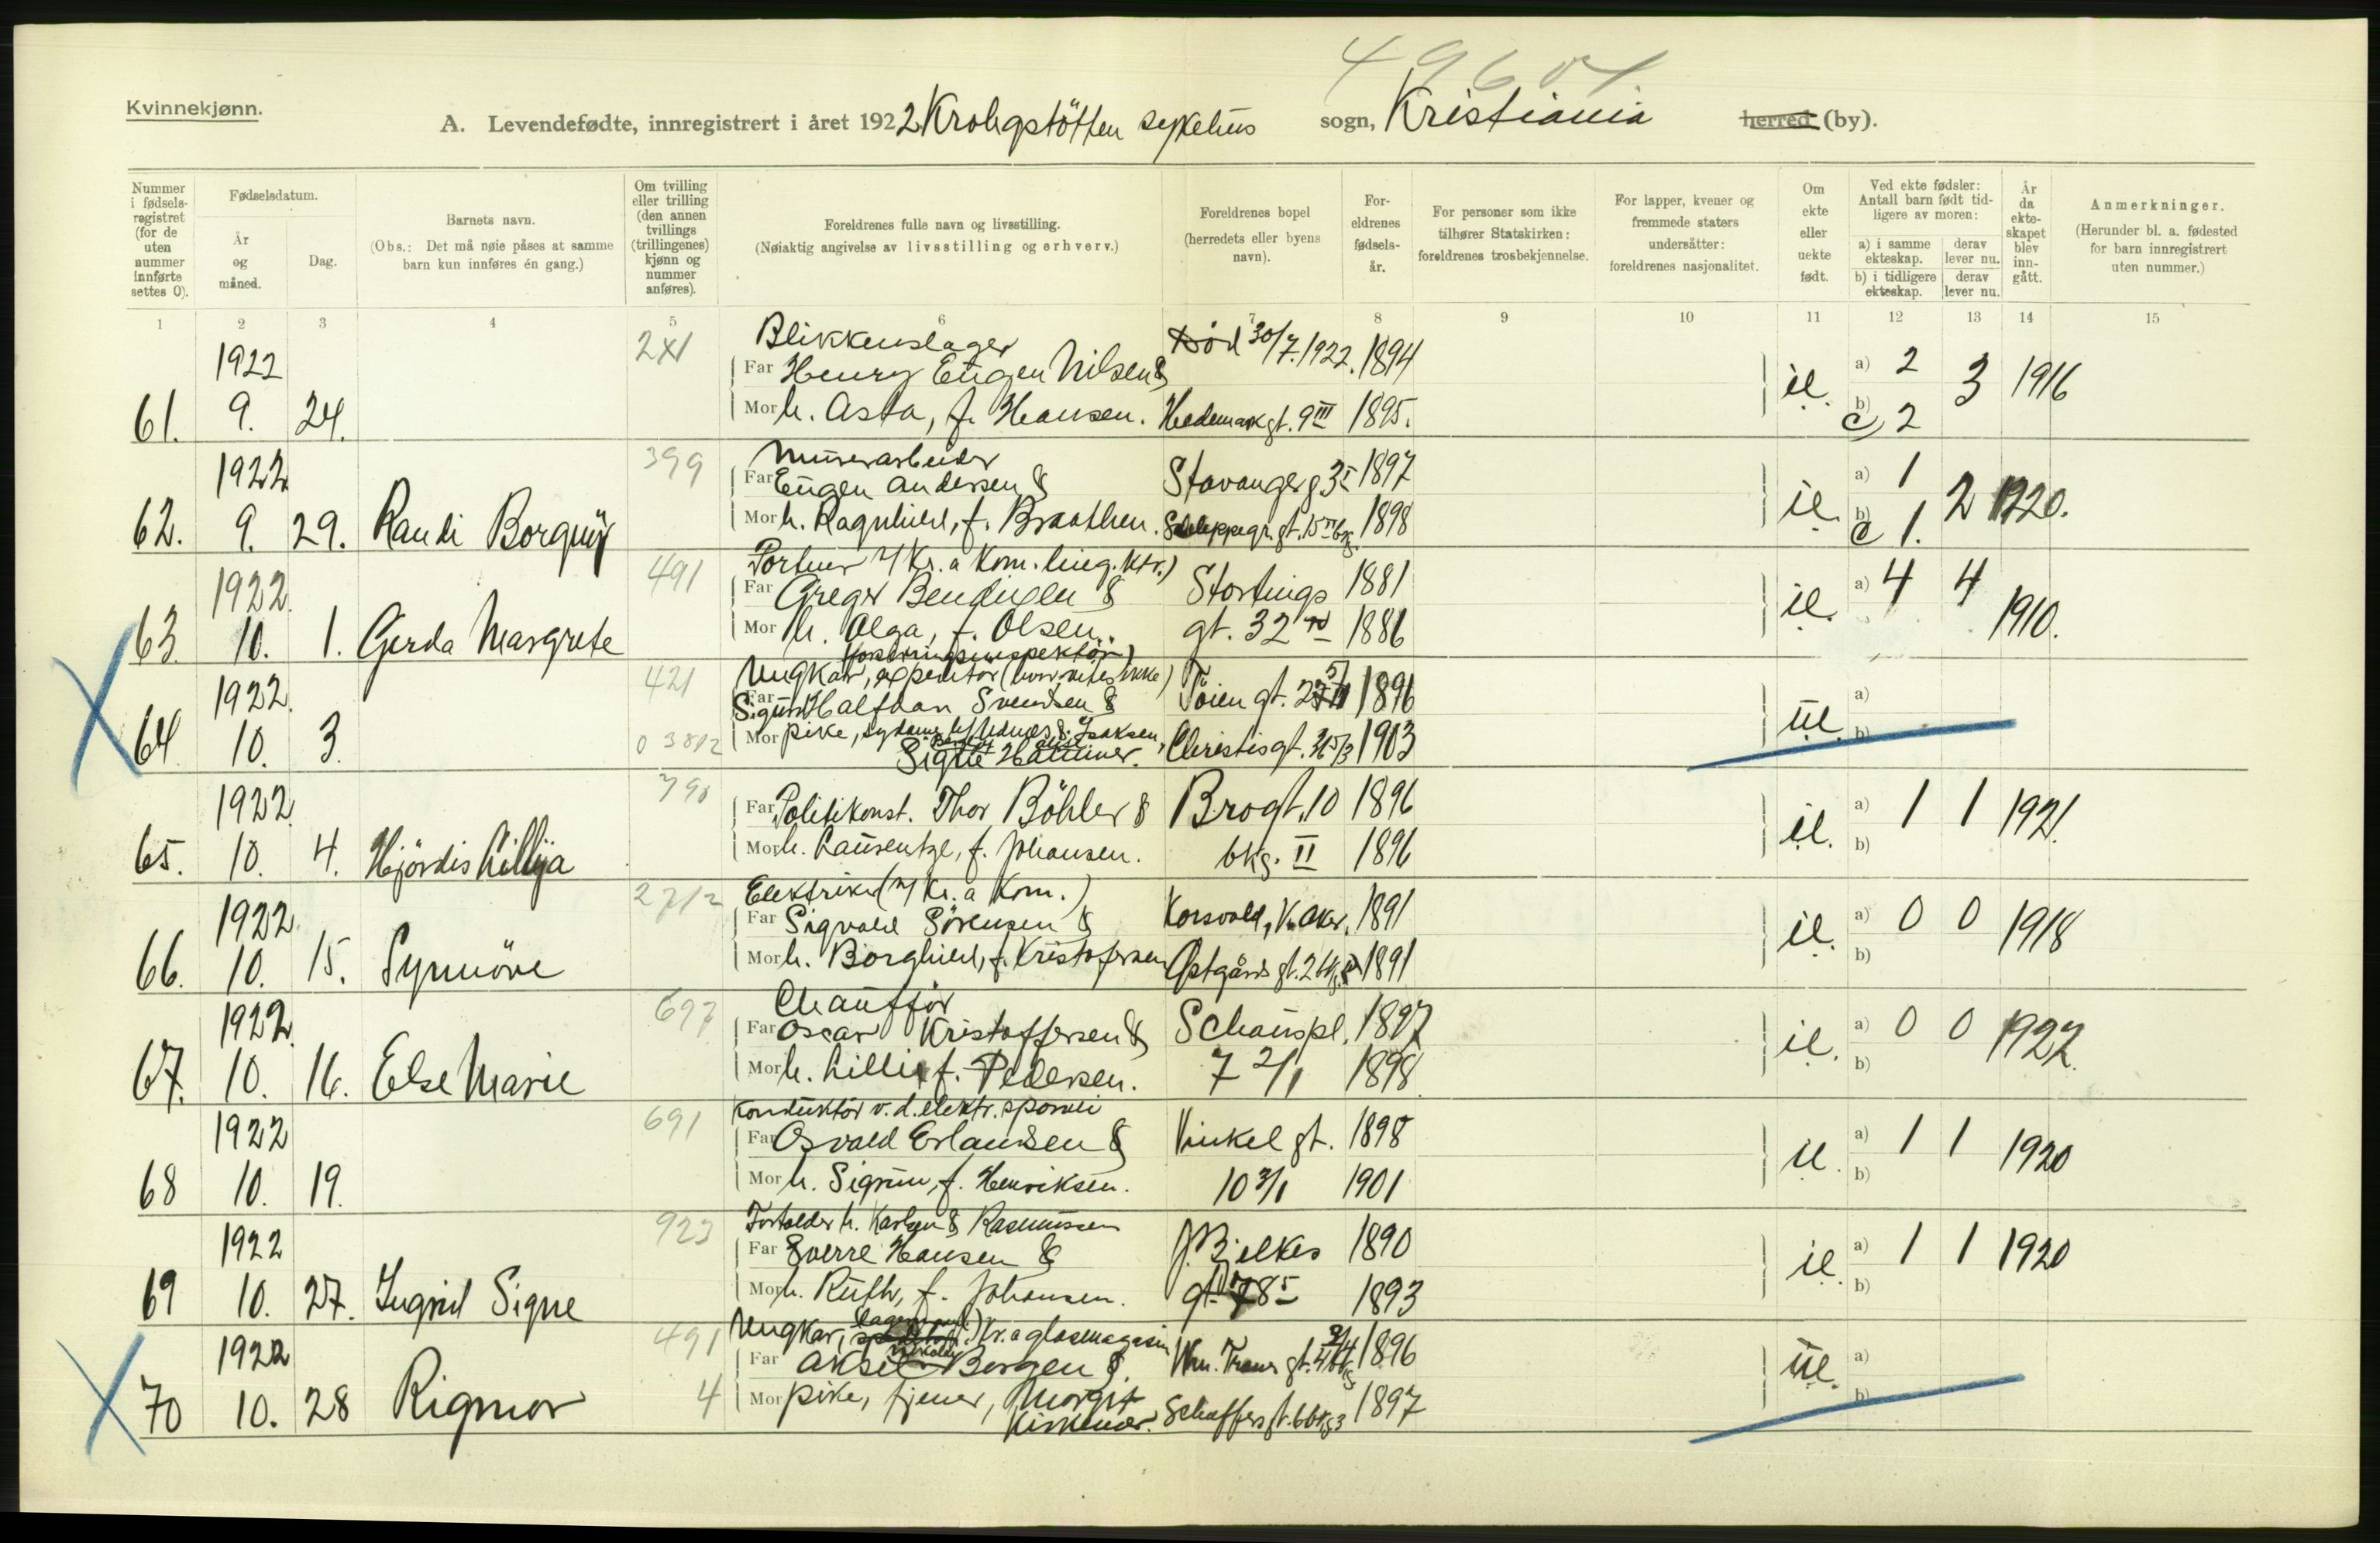 49601
Kvinnekjønn.
A. Levendefødte, innregistrert i året 1922 Krohgstötten sykehus sogn, Kristiania herred (by).
Nummer i fødselsregistret (for de uten nummer innførte settes 0).
Fødselsdatum.
År og måned.
Dag.
Barnets navn.
(Obs.: Det må nøie påses at samme barn kun innføres én gang.)
Om tvilling eller trilling (den annen tvillings (trillingenes) kjønn og nummer anføres).
Foreldrenes fulle navn og livsstilling.
(Nøiaktig angivelse av livsstilling og erhverv.)
Foreldrenes bopel (herredets eller byens navn).
Foreldrenes fødselsår.
For personer som ikke tilhører Statskirken: foreldrenes trosbekjennelse.
For lapper, kvener og fremmede staters undersåtter: foreldrenes nasjonalitet.
Om ekte eller uekte født.
Ved ekte fødsler: Antall barn født tidligere av moren:
a) i samme ekteskap. derav lever nu.
b) i tidligere ekteskap. derav lever nu.
År da ekteskapet blev inngått.
Anmerkninger.
(Herunder bl. a. fødested for barn innregistrert uten nummer.)
1 2 3 4 5 6 7 8 9 10 11 12 13 14 15
1922 241 Blikkenslager Död 30/7.1922. 1894
Far Henry Eugen Nilsen &
61. 9. 24. Mor h. Asta, f. Hansen. Hedemark gt. 9 III 1895. ie. a) 2 b) c) 2 3 1916
1922 399 Murerarbeider
Far Eugen Andersen & Stavangerg 3 I 1897
62. 9. 29. Randi Borgny Mor h. Ragnhild, f. Braathen. Schleppegr. gt. 15 1898 ie. a) 1 b) c 1. 2 1920.
1922. 491 Portner (v/ Kr.a Kom. Ktr.)
Far Greger Bendixen & Stortings 1881
63. 10. 1. Gerda Margrete Mor h. Olga, f. Olsen. gt. 32 1886 ie. a) 4 4 1910.
1922. 421 Ungkar, expeditör (hvor vites ikke)
Far Sigurd Halfdan Svendsen & Töien gt. 1896
64 10. 3. 0 3812 Mor pike, Signe Christies gt. 1903 ue. a) b)
1922. 790
Far Politikonst. Thor Böhler & Brogt. 10 1896
65. 10. 4. Hjördis Lillija Mor h. Laurentze, f. Johansen. bkg. II 1896 ie. a) 1 b) 1 1921.
1922. 2712 Elektriker (v/ Kr.a Kom.)
Far Sigvald Sörensen & Korsvold, V. Aker. 1891
66. 10. 15. Synnöve Mor h. Borghild, f. Kristofersen Östgårds gt. 2 1891 ie. a) 0 b) 0 1918
1922. 697 Chaufför
Far Oscar Kristoffersen & Schouspl. 1897
67. 10. 16. Else Marie Mor h. Lilli f. Pedersen. 7 2/1 1898 ie. a) 0 b) 0 1922.
1922 691 Konduktör v. d. elektr. sporvei
Far Osvald Erlandsen & Vinkel gt. 1898
68 10. 19. Mor h. Sigrun, f. Henriksen. 10 3/1 1901 ie. a) 1 b) 1 1920
1922 923 Forkolder h. Karlsen & Rasmussen
Far Sverre Hansen & J. Bjelkes 1890
69 10. 27. Ingrid Signe Mor h. Ruth, f. Johansen. gt. 1893 ie. a) 1 b) 1 1920
1922 491 Ungkar, Kr.a glasmagasin
Far Aksel Borgen &. Wm. Thranes gt. 1896
70 10. 28 Rigmor 4 Mor pike, tjener, Margit Kirkemoe. Schaffers gt. 6 bkg 3 1897 ue. a) b)